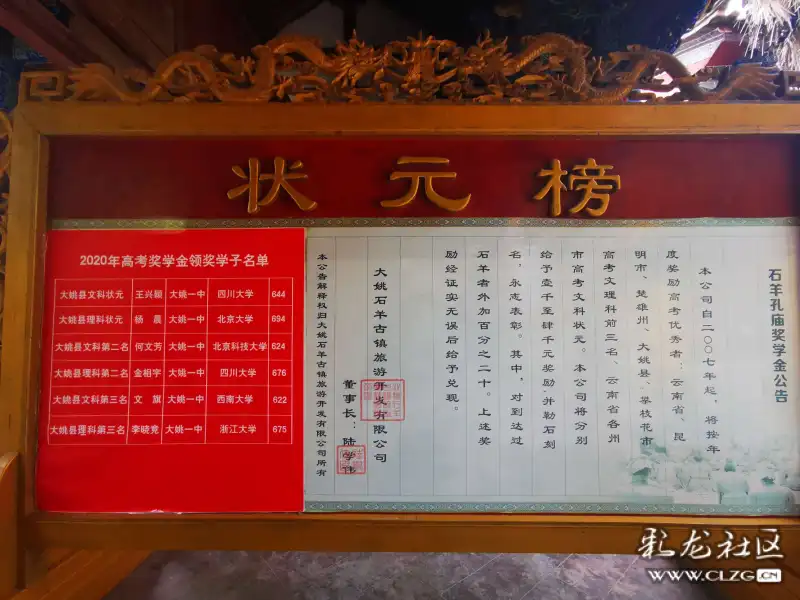 状元榜
2020年高考奖学金领奖学子名单
大姚县文科状元 王兴顺 大姚一中 四川大学 644
大姚县理科状元 杨晨 大姚一中 北京大学 694
大姚县文科第二名 何文芳 大姚一中 北京科技大学 624
大姚县理科第二名 金相宇 大姚一中 四川大学 676
大姚县文科第三名 文旗 大姚一中 西南大学 622
大姚县理科第三名 李晓竞 大姚一中 浙江大学 675
石羊孔庙奖学金公告
本公司自二00七年起，将按年
度奖励高考优秀者：云南省、昆
明市、楚雄州、大姚县、攀枝花市
高考文理科前三名、云南省各州
市高考文科状元。本公司将分别
给予壹千至肆千元奖励并勒石刻
名，永志表彰。其中，对到达过
石羊者外加百分之二十。上述奖
励经证实无误后给予兑现。
大姚石羊古镇旅游开发有限公司
董事长：陆学伟
本公告解释权归大姚石羊古镇旅游开发有限公司所有
彩龙社区
WWW.CLZG.CN